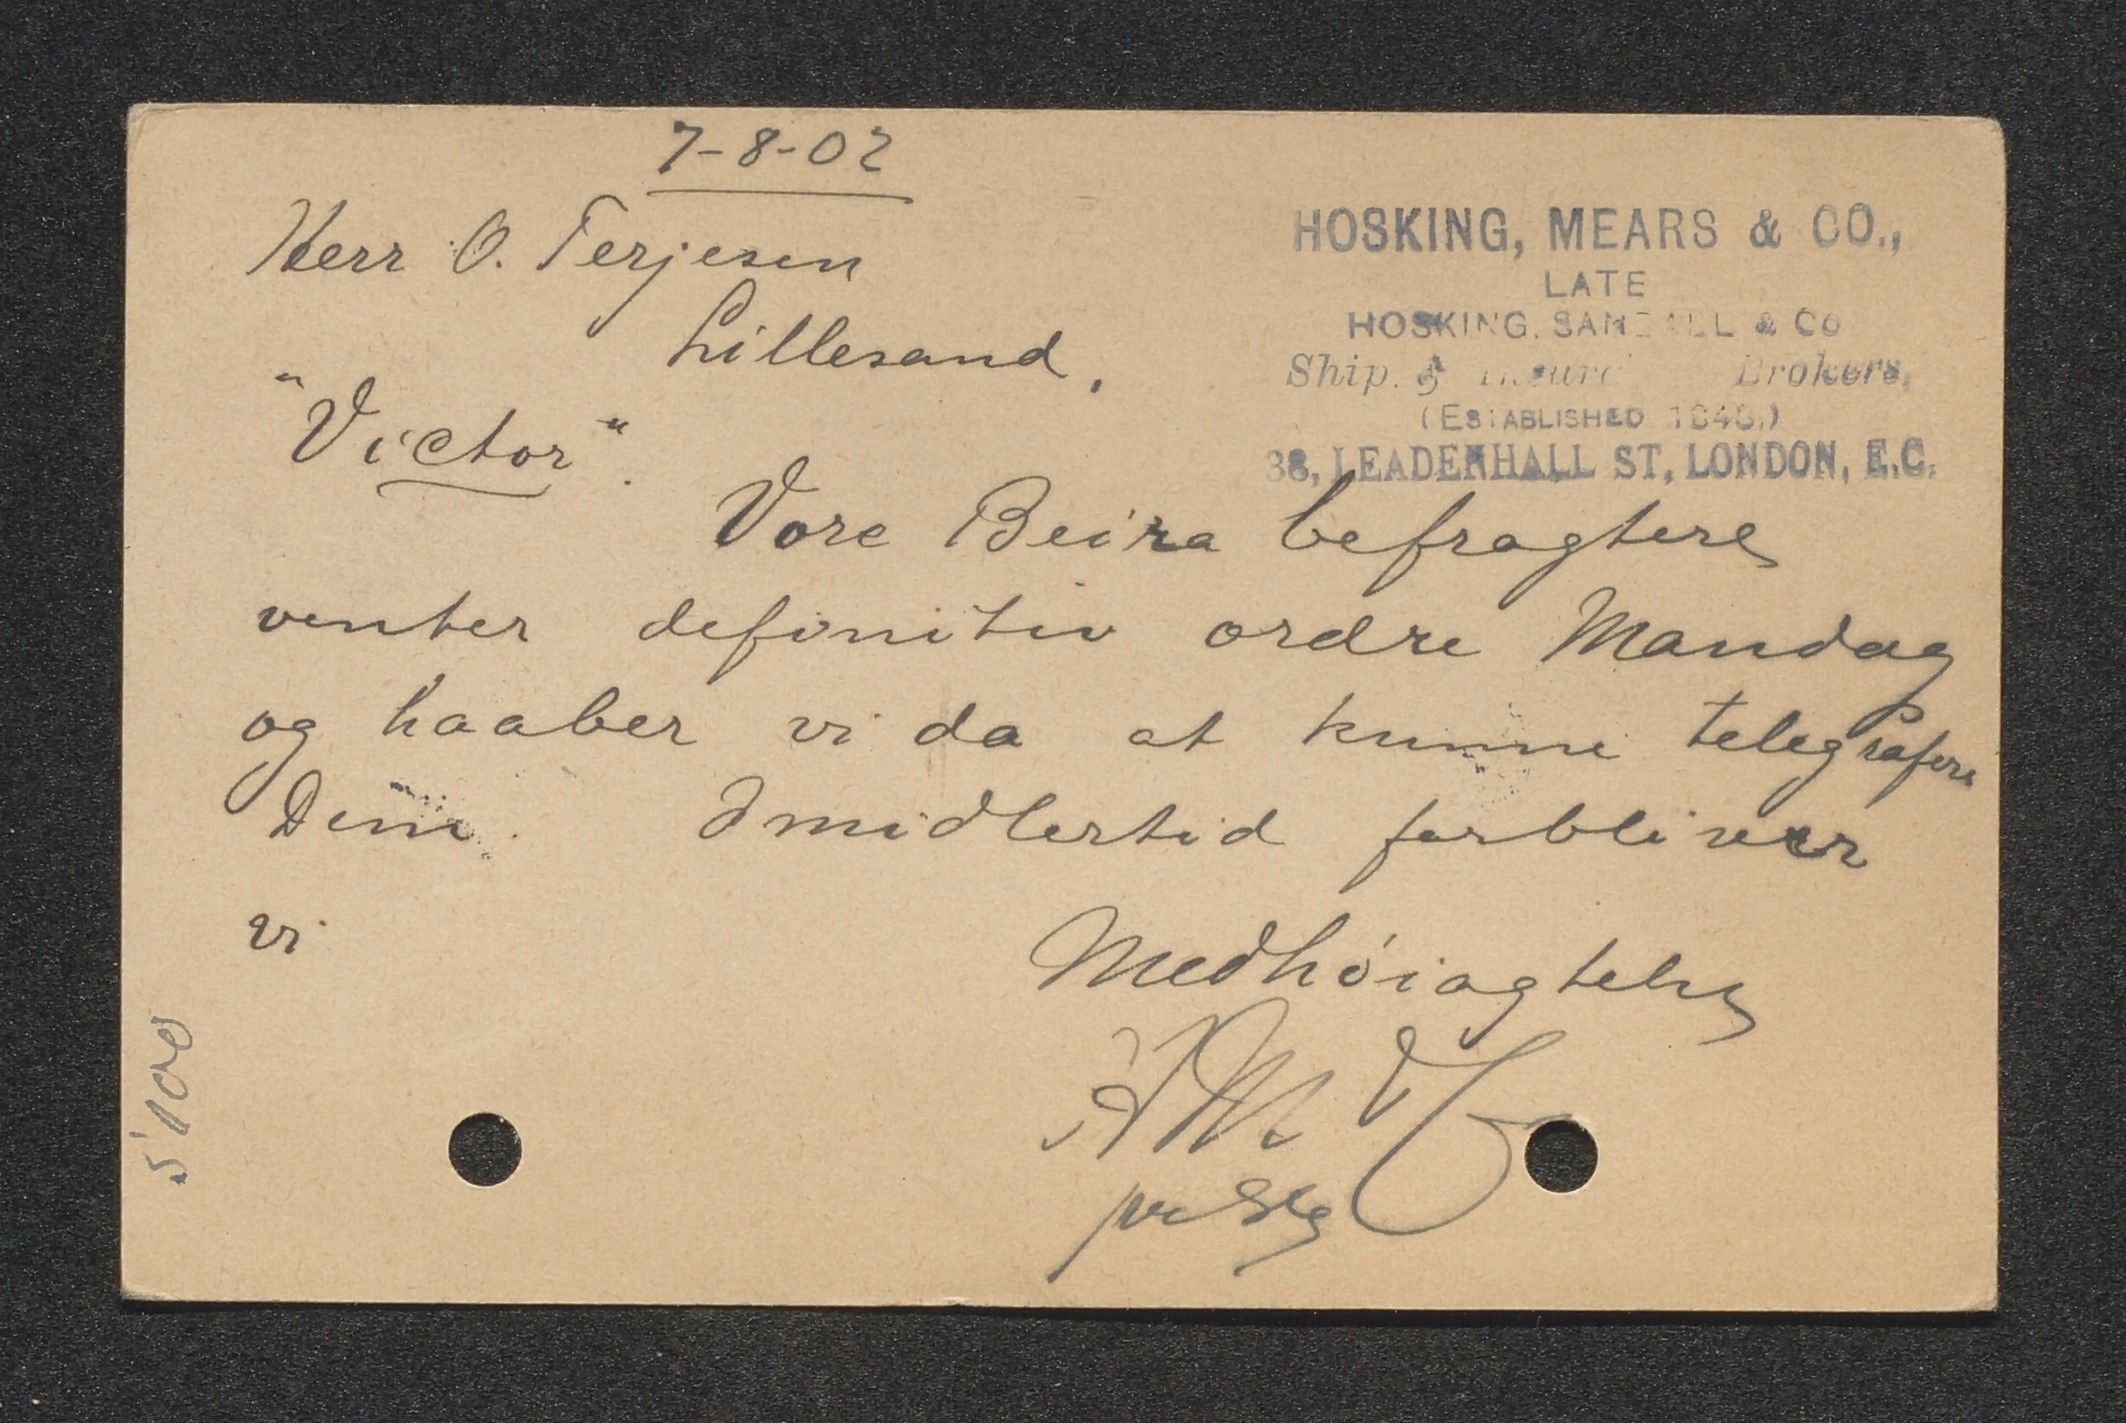 7-8-02
HOSKING, MEARS & CO.,
LATE
HOSKING, SANDALL & Co
Ship & Brokers,
(ESTABLISHED
38, LEADENHALL ST, LONDON, E.C.
Herr O. Terjesen
Lillesand.
"Victor".
Vore Beira befragtere
venter definitiv ordre Mandag
og haaber vi da at kunne telegrafere
Dem. Imidlertid forbliver
vi
Medhöiagtelse